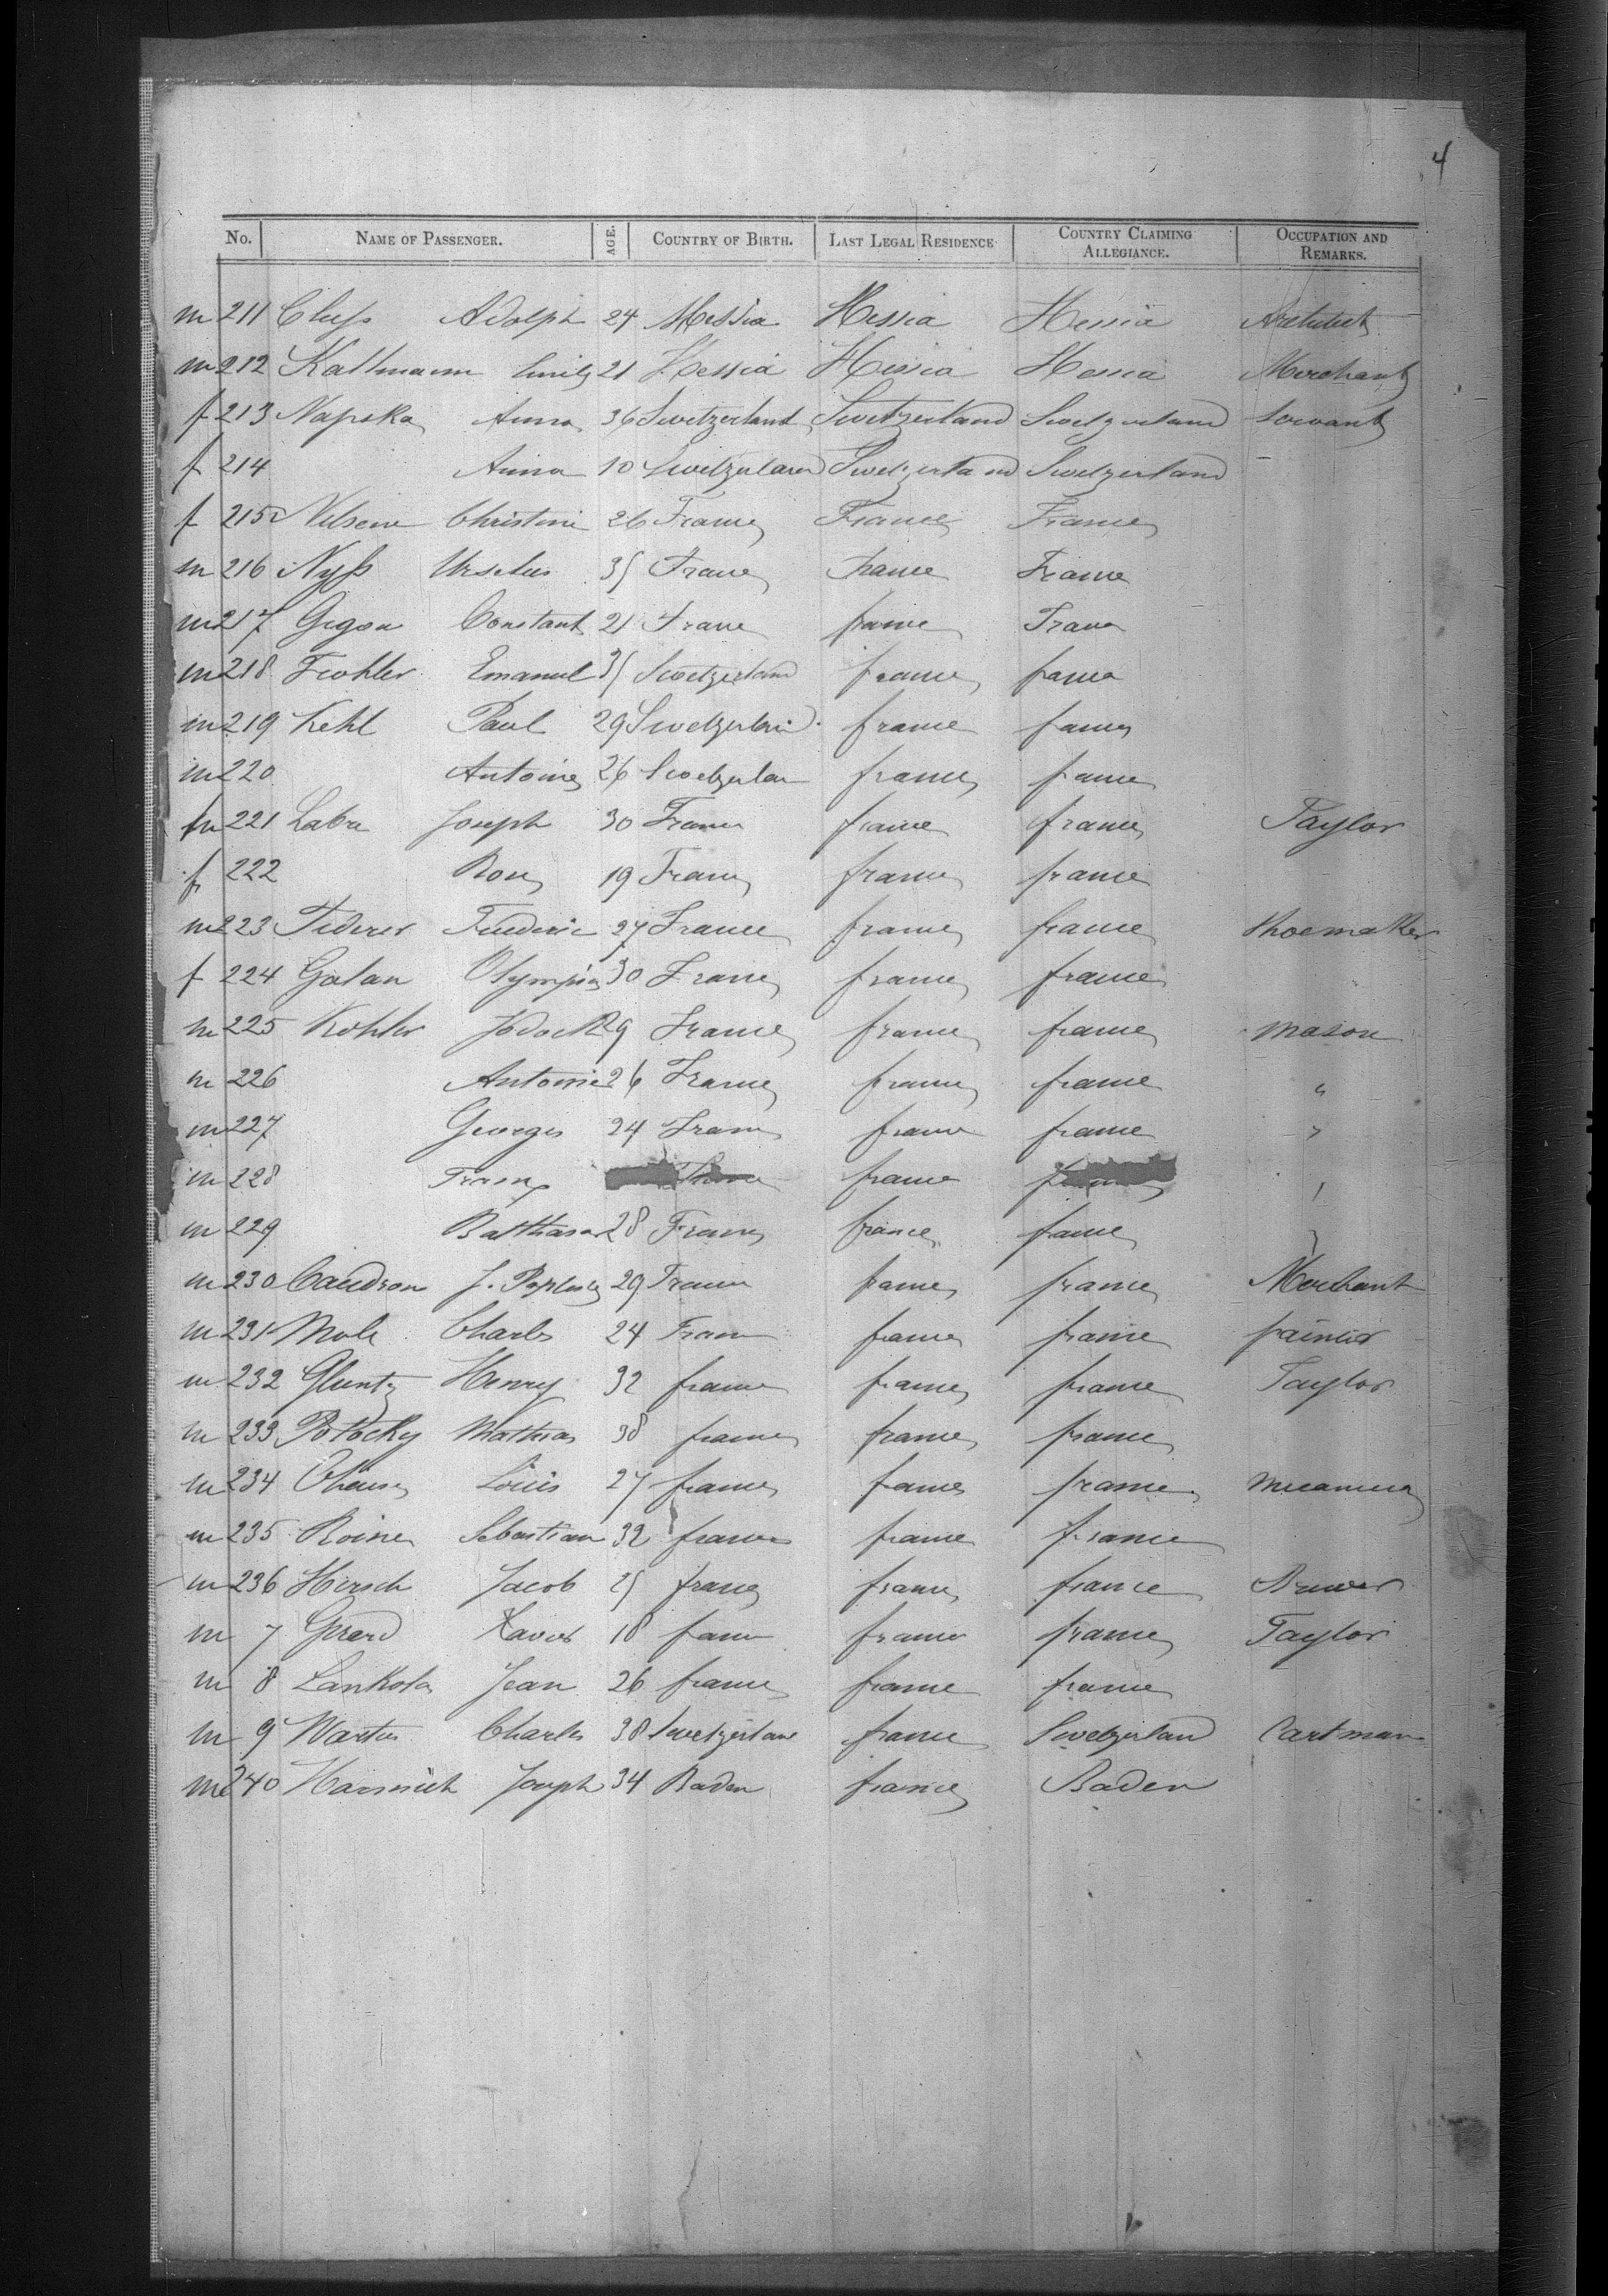 4
No. NAME OF PASSENGER. AGE. COUNTRY OF BIRTH. LAST LEGAL RESIDENCE COUNTRY CLAIMING ALLEGIANCE. OCCUPATION AND REMARKS.
m 211 Cluss Adolph 24 Hessia Hessia Hessia Architect
m 212 Kattmann Emily 21 Hessia Hessia Hessia Merchant
f 213 Napska Anna 36 Switzerland Switzerland Switzerland Servant
f 214 Anna 10 Switzerland Switzerland Switzerland
f 215 Nelsene Christine 26 France France France
m 216 Nyss Urselus 35 France France France
m 217 Gigon Constant 21 France france France
m 218 Emanuel 35 Switzerland france france
m 219 Kehl Paul 29 Switzerland france france
m 220 Antoine 26 Switzerlan france france
m 221 Labra Joseph 30 France france france Taylor
f 222 Rose 19 France france france
m 223 Federer Frederic 27 France france france Shoemaker
f 224 Galan Olympia 30 France france france
m 225 Kohler Jodock 29 France france france Mason
m 226 Antoine 26 France france france "
m 227 Georges 24 France france france "
m 228 Franz france
m 229 Balthasar 28 France france france
m 230 Caudron J. Baptiste 29 France france france Merchant
m 231 Mole Charles 24 France france france painter
m 232 Gluntz Henry 32 france france france Taylor
m 233 Potocky Mathias 38 france france france
m 234 Louis 27 france france france
m 235 Roine Sebastian 32 france france france
m 236 Hirsch Jacob 25 france france france Brewer
m 7 Girard Xavier 18 france france france Taylor
m 8 Lankola Jean 26 france france france
m 9 Charles 38 Switzerland france Switzerland Cartman
m 240 Joseph 34 Baden france Baden